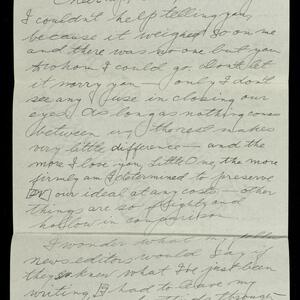 I couldn't help telling you,
because it weighed so on me
and there was no one but you
to whom I could go. Don't let
it worry you — only I don't
see any use in closing our
eyes. As long as nothing comes
between us, the rest makes
very little difference — and the
more I love you, Little One, the more
firmly am I determined to preserve
our ideal at any costs — other
things are so flighty and
hollow in comparison.
I wonder what my
news editors would say if
they knew what I've just been
writing. I had to leave my